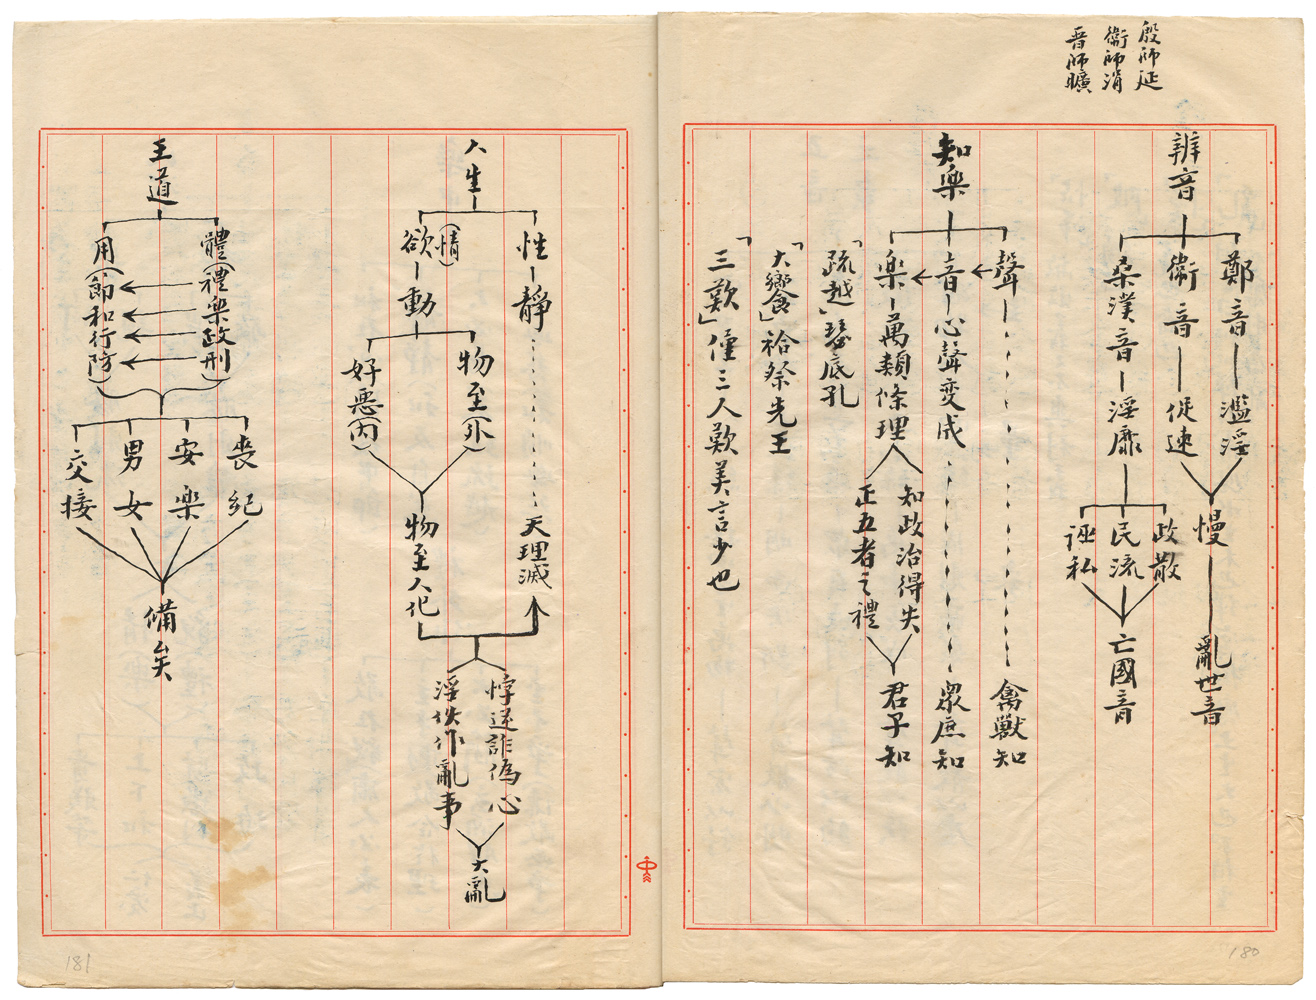 殷師延
衛師涓
晉師曠
辨音
鄭音
濫淫
衛音
促速
慢
亂世音
桑濮音
淫靡
政散
民流
誣私
亡國音
知樂
聲
禽獸知
音
心聲変成
眾庶知
樂
萬類條理
知政治得失
正五者之禮
君子知
「疏越」瑟底孔
「大饗」祫祭先王
「三歎」僅三人歎美言少也
180
人生
性
靜
天理滅
欲(情)
動
物至(外)
好惡(內)
物至人化
悖逆詐偽心
淫泆作亂事
大亂
王道
體(禮樂政刑)
用(節和行防)
喪紀
安樂
男女
交接
備矣
181